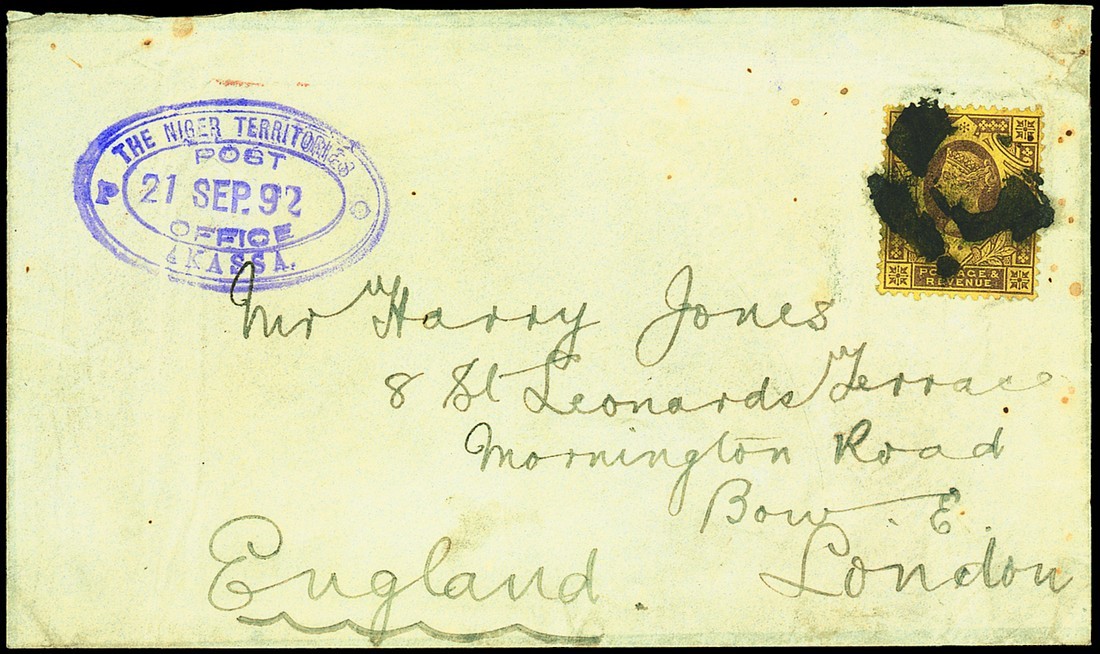 THE NIGER TERRITORIES
POST
P 21 SEP. 92
OFFICE
AKASSA.
POSTAGE &
REVENUE
Mr Harry Jones
8 St Leonards Terrace
Mornington Road
Bow. E.
London
England.